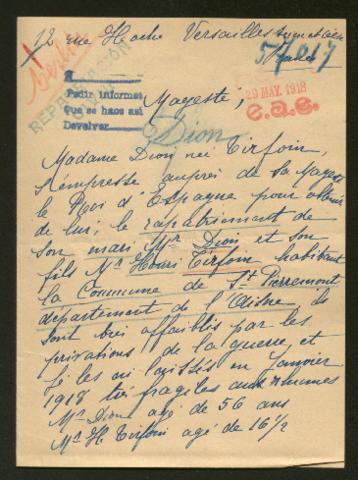 12 rue Hoche Versailles
57.017
REPATRIACIÓN
Pedir informes
Que se haos asi
Devolver
29 MAY. 1918
e.a.e.
Mageste,
Dion
Madame Dion née Tirfoin,
S'empresse auprès de sa Mageste
le Roi d'Espagne pour obtenir
de lui, le rapatriment de
son mari Mr Dion et son
fils Mr Henri Tirfoin habitant
la Commune de St Pierremont
departement de l'Aisne, ils
sont très affaiblis par les
privations de la guerre, et
je les ai laissés en Janvier
1918 très fragiles aux rhumes
Mr Dion agé de 56 ans
Mr H. Tirfoin agé de 16 1/2